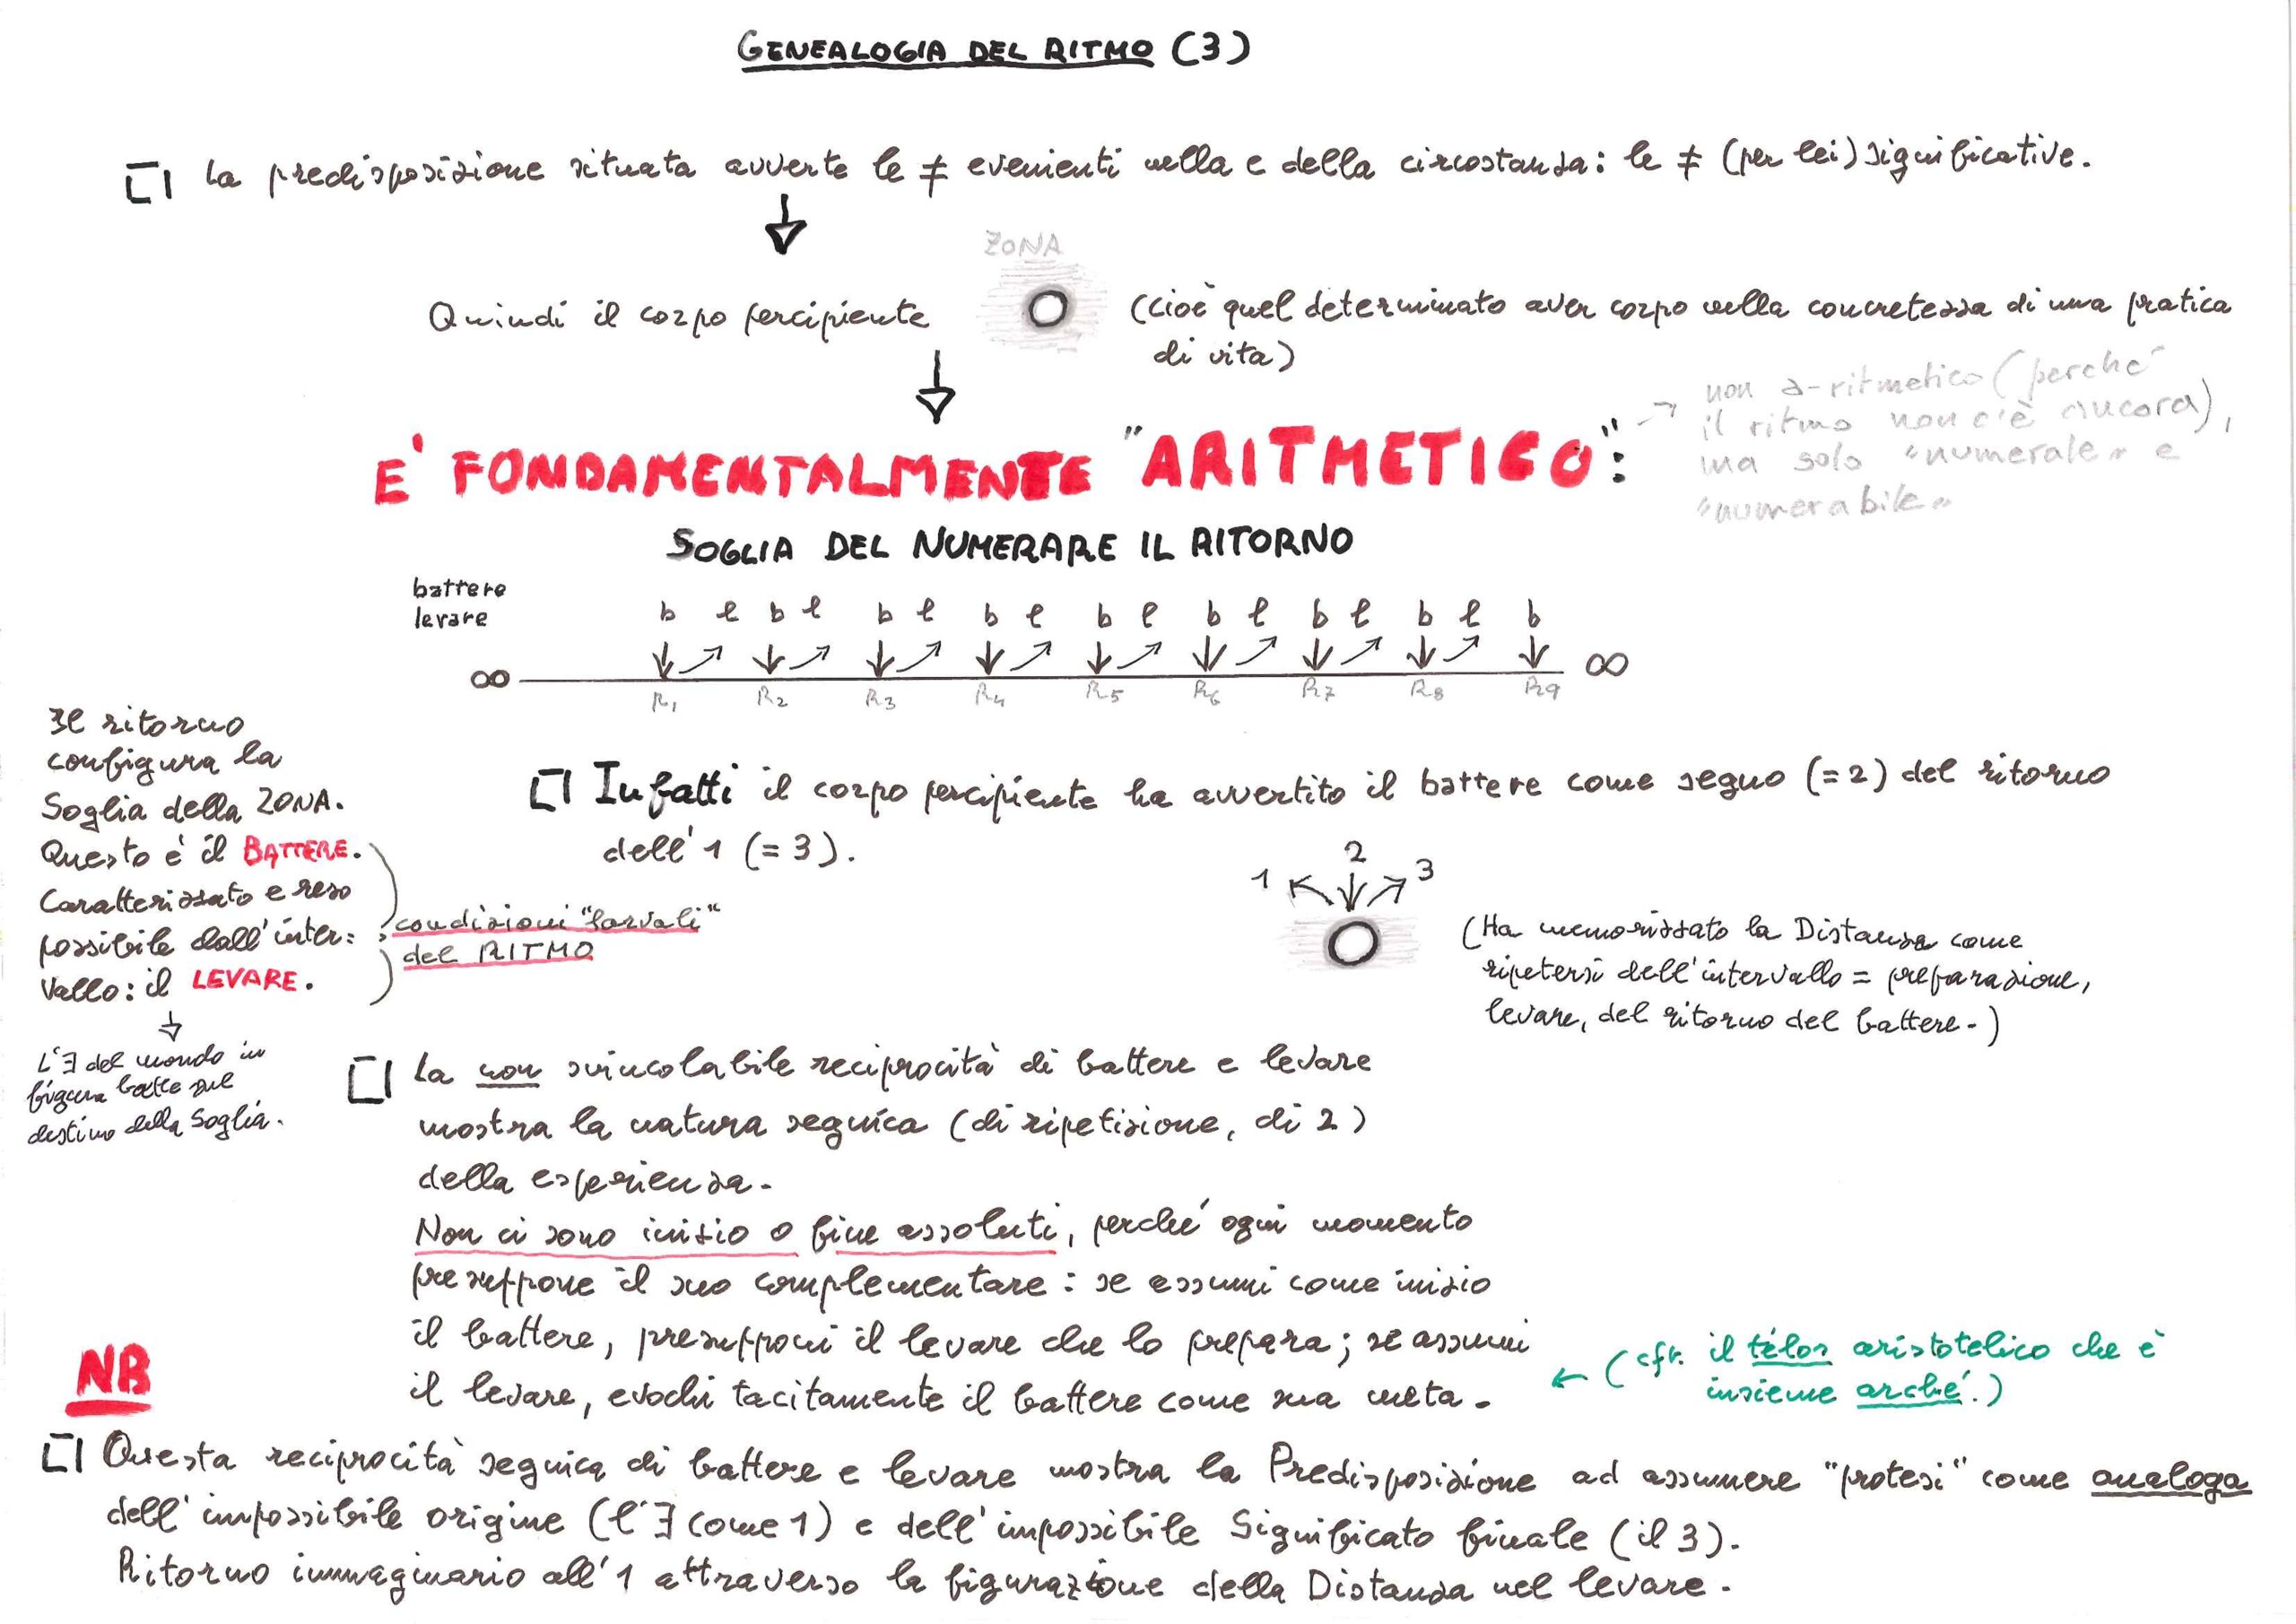 GENEALOGIA DEL RITMO (3)
La predisposizione situata avverte le ≠ evenienti nella e della circostanza: le ≠ (per lei) significative.
ZONA
Quindi il corpo percipiente
(cioè quel determinato aver corpo nella concretezza di una pratica
di vita)
E' FONDAMENTALMENTE "ARITMETICO":
→ non a-ritmetico (perché
il ritmo non c'è ancora),
ma solo "numerale" e
"numerabile"
SOGLIA DEL NUMERARE IL RITORNO
battere
levare
b l b l b l b l b l b l b l b l b
∞ ∞
R1 R2 R3 R4 R5 R6 R7 R8 R9
Il ritorno
configura la
Soglia della ZONA.
Questo è il BATTERE.
Caratterizzato e reso
possibile dall'inter=
vallo: il LEVARE.
condizioni "larvali"
del RITMO
L'∃ del mondo in
figura batte sul
destino della Soglia.
Infatti il corpo percipiente ha avvertito il battere come segno (=2) del ritorno
dell'1 (=3).
1 2 3
(Ha memorizzato la Distanza come
ripetersi dell'intervallo = preparazione,
levare, del ritorno del battere.)
La non svincolabile reciprocità di battere e levare
mostra la natura segnica (di ripetizione, di 2)
della esperienza.
Non ci sono inizio o fine assoluti, perché ogni momento
presuppone il suo complementare: se assumi come inizio
il battere, presupponi il levare che lo prepara; se assumi
il levare, evochi tacitamente il battere come sua meta.
← (cfr. il télos aristotelico che è
insieme arché.)
NB
Questa reciprocità segnica di battere e levare mostra la Predisposizione ad assumere "protesi" come analoga
dell'impossibile origine (l'∃ come 1) e dell'impossibile Significato finale (il 3).
Ritorno immaginario all'1 attraverso la figurazione della Distanza nel levare.